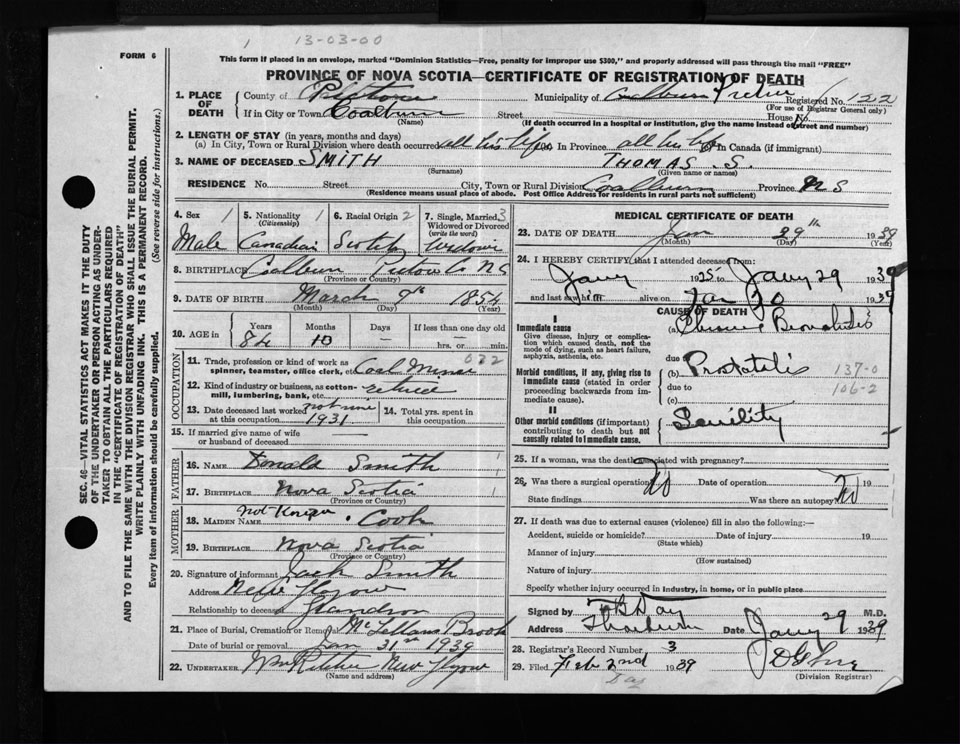 1 13-03-00
FORM 6
This form if placed in an envelope, marked "Dominion Statistics—Free, penalty for improper use $300," and properly addressed will pass through the mail "FREE"
PROVINCE OF NOVA SCOTIA—CERTIFICATE OF REGISTRATION OF DEATH
1. PLACE OF DEATH
County of Pictou Municipality of Coalburn Registered No. 122
(For use of Registrar General only)
If in City or Town Coalburn Street House No.
(Name) (If death occurred in a hospital or institution, give the name instead of street and number)
2. LENGTH OF STAY (in years, months and days)
(a) In City, Town or Rural Division where death occurred all his life In Province all his life In Canada (if immigrant)
3. NAME OF DECEASED SMITH THOMAS . S.
(Surname) (Given name or names)
RESIDENCE No. Street City, Town or Rural Division Coalburn Province N S
(Residence means usual place of abode. Post Office Address for residents in rural parts not sufficient)
4. Sex 1
Male
5. Nationality 1
(Citizenship)
Canadian
6. Racial Origin 2
Scotch
7. Single, Married, 3
Widowed or Divorced
(write the word)
8. BIRTHPLACE Coalburn Pictou Co NS
(Province or Country)
9. DATE OF BIRTH March 9th 1854
(Month) (Day) (Year)
10. AGE in Years Months Days If less than one day
84 10 — — hrs. or min.
OCCUPATION
11. Trade, profession or kind of work as spinner, teamster, office clerk, etc. Coal Miner 022
12. Kind of industry or business, as cotton-mill, lumbering, bank, etc. retired
13. Date deceased last worked at this occupation 1931
14. Total yrs. spent in this occupation
15. If married give name of wife or husband of deceased
FATHER
16. NAME Donald Smith
17. BIRTHPLACE Nova Scotia
(Province or Country)
MOTHER
18. MAIDEN NAME Not Known . Cook
19. BIRTHPLACE Nova Scotia
(Province or Country)
20. Signature of informant Jack Smith
Address New Glasgow
Relationship to deceased Grandson
21. Place of Burial, Cremation or Removal McLellans Brook
Date of burial or removal Jan 31st 1939
22. UNDERTAKER Wm Ritchie New Glasgow
(Name and address)
MEDICAL CERTIFICATE OF DEATH
23. DATE OF DEATH Jan 29th 1939
(Month) (Day) (Year)
24. I HEREBY CERTIFY that I attended deceased from:
Jany 1935 to Jany 29 1939
and last saw him alive on Jan 1939
CAUSE OF DEATH
I
Immediate cause
Give disease, injury or complication which caused death, not the mode of dying, such as heart failure, asphyxia, asthenia, etc.
(a) Chronic Bronchitis
due to
Morbid conditions, if any, giving rise to immediate cause (stated in order proceeding backwards from immediate cause).
(b) Prostatitis 137-0
due to 106-2
(c)
II
Other morbid conditions (if important) contributing to death but not causally related to immediate cause.
Senility
25. If a woman, was the death associated with pregnancy?
26. Was there a surgical operation? No Date of operation 19
State findings Was there an autopsy? No
27. If death was due to external causes (violence) fill in also the following:—
Accident, suicide or homicide? Date of injury 19
(State which)
Manner of injury
(How sustained)
Nature of injury
Specify whether injury occurred in Industry, in home, or in public place
Signed by Day M.D.
Address Thorburn Date Jany 29 1939
28. Registrar's Record Number 3
29. Filed Feb 2nd 1939
(Division Registrar)
Day
SEC. 46—VITAL STATISTICS ACT MAKES IT THE DUTY
OF THE UNDERTAKER OR PERSON ACTING AS UNDER-
TAKER TO OBTAIN ALL THE PARTICULARS REQUIRED
IN THE "CERTIFICATE OF REGISTRATION OF DEATH"
AND TO FILE THE SAME WITH THE DIVISION REGISTRAR WHO SHALL ISSUE THE BURIAL PERMIT.
WRITE PLAINLY WITH UNFADING INK. THIS IS A PERMANENT RECORD.
Every item of information should be carefully supplied. (See reverse side for instructions.)